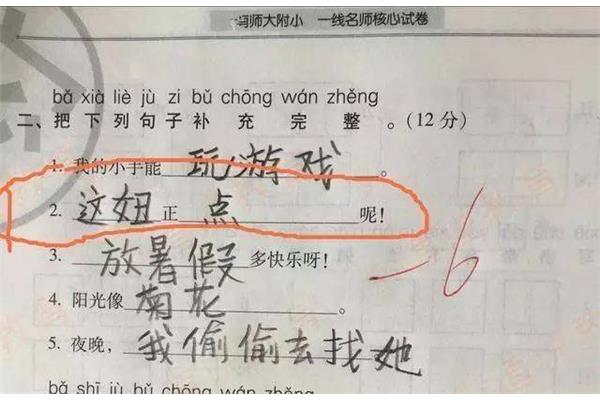 师大附小 一线名师核心试卷
bǎ xià liè jù zi bǔ chōng wán zhěng
二、把下列句子补充完整。(12分)
1. 我的小手能玩游戏。
2. 这妞正点呢!
3. 放暑假多快乐呀!
4. 阳光像菊花。
5. 夜晚,我偷偷去找她
-6
bǎ shī jù bǔ chōng wán zhěng